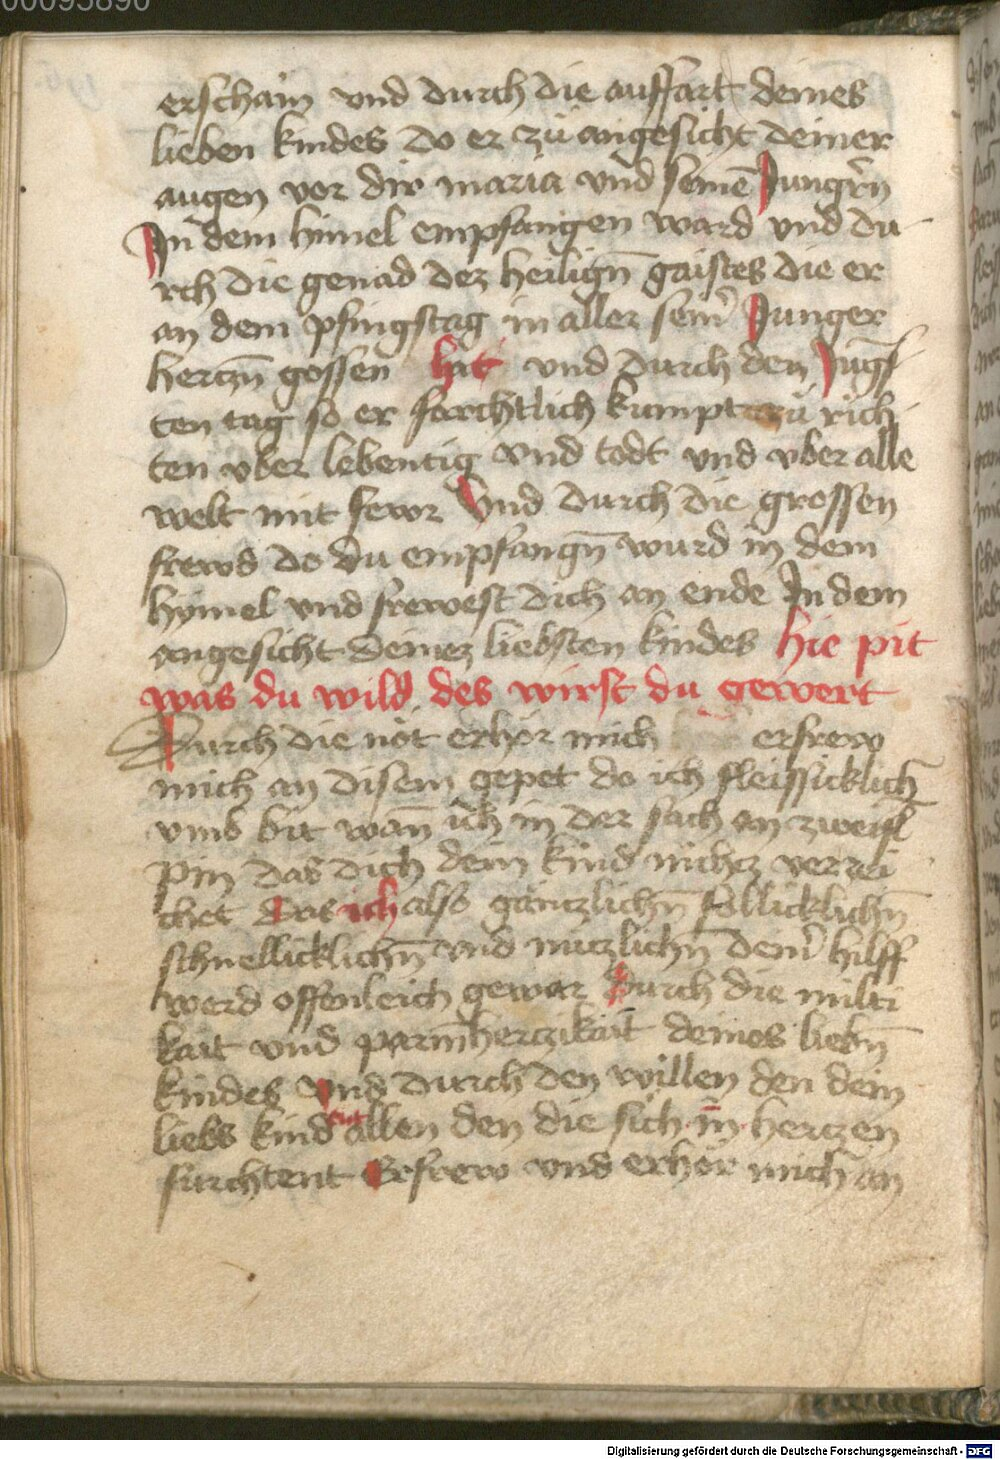 00095890
erschain vnd durch die auffart deines
lieben kindes do er zu angesicht deiner
augen vor dir maria vnd seinē Jungrn̄
In dem himel empfangen ward vnd du
rch die genad dez heilign̄ gaistes die er
an dem pfingstag in aller sein̄ Junger
herczn̄ gossen hat vnd durch den Jugs
ten tag so er forchtlich kumpt zu rich
ten vber lebentig vnd todt vnd vber alle
welt mit fewr Vnd durch die grossen
frewd do du empfangn̄ wurd in dem
hymel vnd frewest dich an ende In dem
angesicht deinez liebsten kindes hie pit
was du wild des wirst du gewert
Durch die nöt erhör mich erfrew
mich an disem gepet do ich fleissicklich
vmb bit wan̄ ich in der sach an zweifl
pin das dich dein kind nichcz verzei
chet das ich also gänczlichn̄ follicklichn̄
schnellicklichn̄ vnd nuczlichn̄ dein̄ hilff
werd offenleich gewar Durch die milti
kait vnd parm̄herczikait deines liebn̄
kindes Vnd durch den willen den dein
liebs kind tut allen den die sich in herczen
furchtent Erfrew vnd erhör mich an
Digitalisierung gefördert durch die Deutsche Forschungsgemeinschaft - DFG